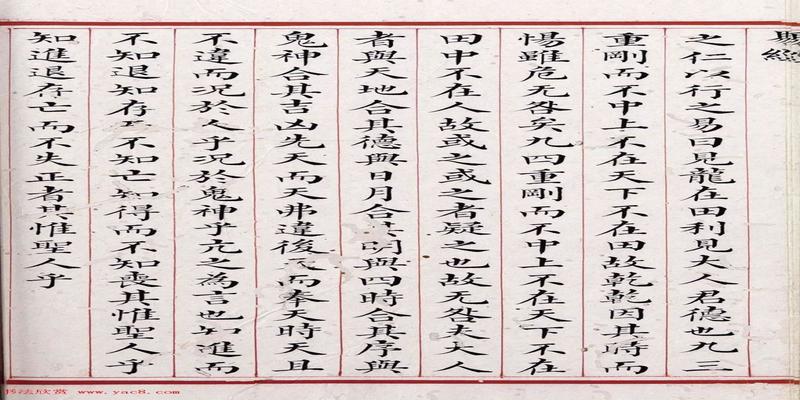 之仁以行之易曰見龍在田利見大人君德也九三
重剛而不中上不在天下不在田故乾乾因其時而
惕雖危无咎矣九四重剛而不中上不在天下不在
田中不在人故或之或之者疑之也故无咎夫大人
者與天地合其德與日月合其明與四時合其序與
鬼神合其吉凶先天而天弗違後天而奉天時天且
不違而況於人乎況於鬼神乎亢之為言也知進而
不知退知存而不知亡知得而不知喪其惟聖人乎
知進退存亡而不失正者其惟聖人乎
书法欣赏 www.yac8.com